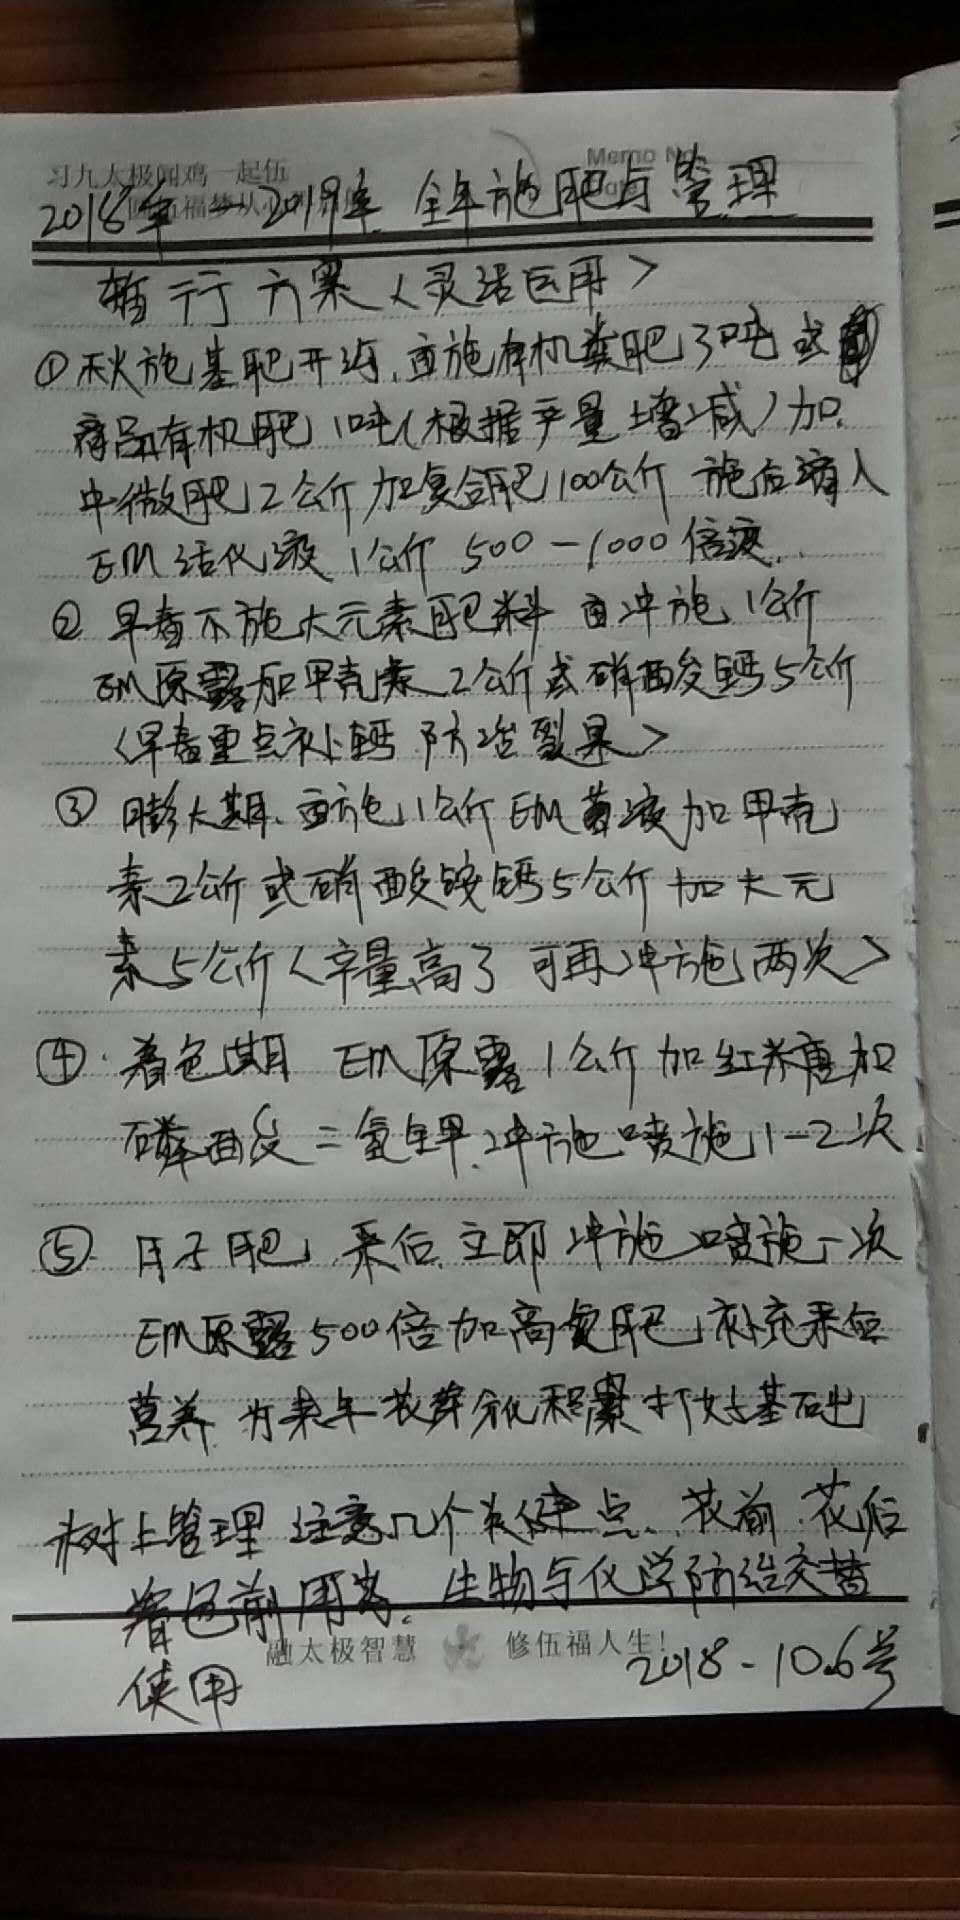 习九太极闻鸡一起伍
Memo No
2018年 — 2019年 全年施肥与管理
暂行方案〈灵活运用〉
① 秋施基肥开沟.亩施有机粪肥3吨或
商品有机肥1吨(根据产量增减)加.
中微肥2公斤加复合肥100公斤 施后灌入
EM活化液 1公斤 500-1000倍液.
② 早春不施大元素肥料 亩冲施1公斤
EM原露加甲壳素2公斤或硝酸钙5公斤
〈早春重点补钙 防治裂果〉
③ 膨大期.亩施1公斤EM菌液加甲壳
素2公斤或硝酸铵钙5公斤加大元
素5公斤〈产量高了 可再冲施两次〉
④ 着色期 EM原露1公斤加红糖加
磷酸二氢钾.冲施喷施1-2次
⑤ 月子肥 采后立即冲施喷施一次
EM原露500倍加高氮肥 补充采后
营养 为来年花芽分化积累打好基础
树上管理 注意几个关键点.花前.花后
着色前用药.生物与化学防治交替
融太极智慧 修伍福人生!
使用 2018-10.6号